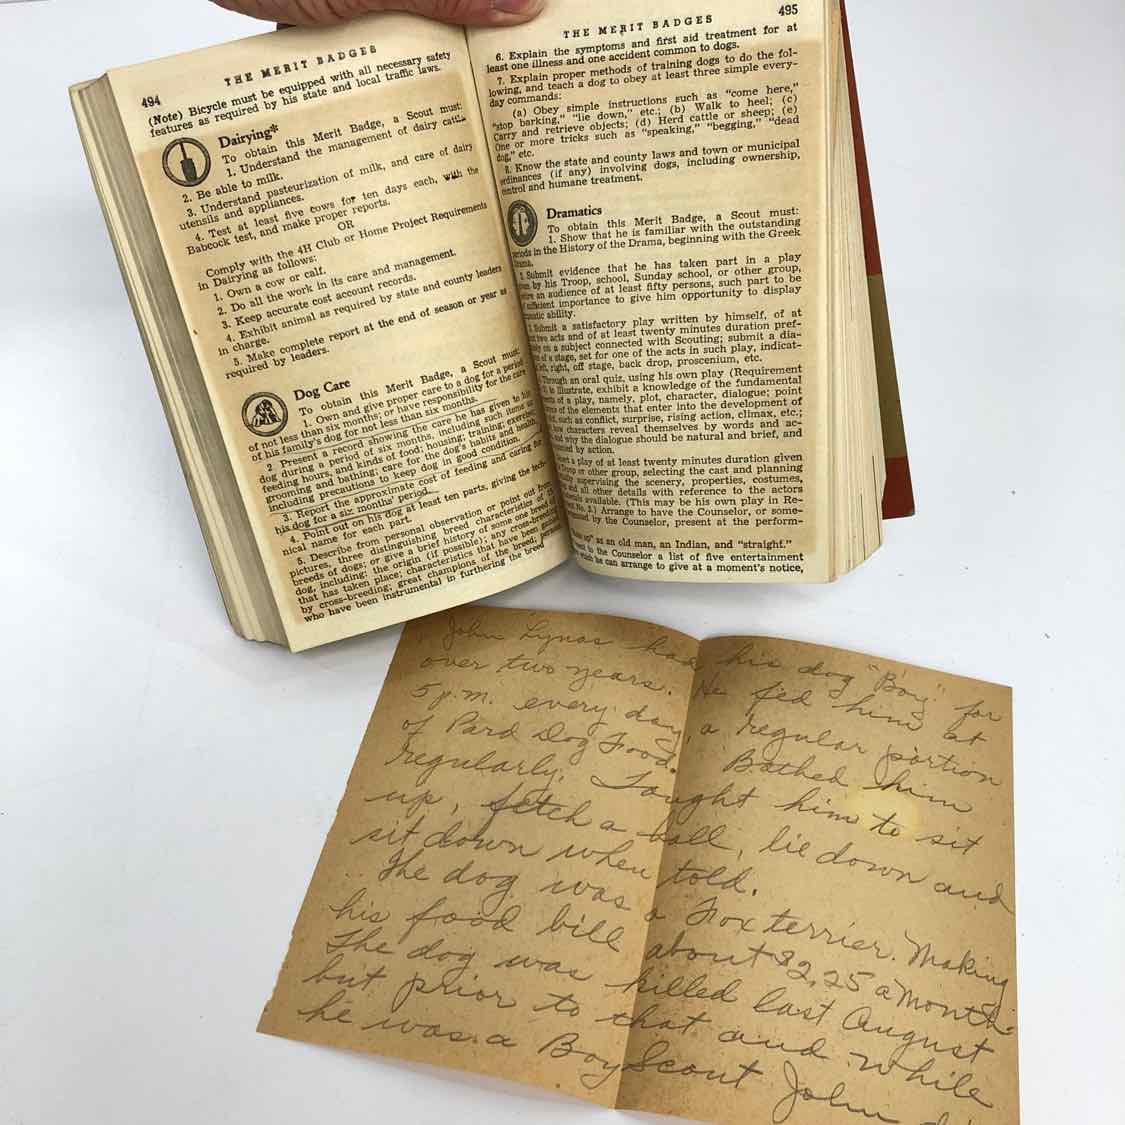 494
THE MERIT BADGES
(Note) Bicycle must be equipped with all necessary safety
features as required by his state and local traffic laws.
Dairying*
To obtain this Merit Badge, a Scout must:
1. Understand the management of dairy cattle.
2. Be able to milk.
3. Understand pasteurization of milk, and care of dairy
utensils and appliances.
4. Test at least five cows for ten days each, with the
Babcock test, and make proper reports.
OR
Comply with the 4H Club or Home Project Requirements
in Dairying as follows:
1. Own a cow or calf.
2. Do all the work in its care and management.
3. Keep accurate cost account records.
4. Exhibit animal as required by state and county leaders
in charge.
5. Make complete report at the end of season or year as
required by leaders.
Dog Care
To obtain this Merit Badge, a Scout must:
1. Own and give proper care to a dog for a period
of not less than six months; or have responsibility for the care
of his family's dog for not less than six months.
2 Present a record showing the care he has given to his
dog during a period of six months, including such items as
feeding hours, and kinds of food; housing; training; exercise;
grooming and bathing; care for the dog's habits and health,
including precautions to keep dog in good condition.
3. Report the approximate cost of feeding and caring for
his dog for a six months' period.
4. Point out on his dog at least ten parts, giving the tech-
nical name for each part.
5. Describe from personal observation or point out from
pictures, three distinguishing breed characteristics of
breeds of dogs; or give a brief history of some one breed of
dog, including: the origin (if possible); any cross-breeding
that has taken place; characteristics that have been gained
by cross-breeding; great champions of the breed;
who have been instrumental in furthering the breed
THE MERIT BADGES
495
6. Explain the symptoms and first aid treatment for at
least one illness and one accident common to dogs.
7. Explain proper methods of training dogs to do the fol-
lowing, and teach a dog to obey at least three simple every-
day commands:
(a) Obey simple instructions such as "come here,"
"stop barking," "lie down," etc.; (b) Walk to heel; (c)
Carry and retrieve objects; (d) Herd cattle or sheep; (e)
One or more tricks such as "speaking," "begging," "dead
dog," etc.
8. Know the state and county laws and town or municipal
ordinances (if any) involving dogs, including ownership,
control and humane treatment.
Dramatics
To obtain this Merit Badge, a Scout must:
1. Show that he is familiar with the outstanding
periods in the History of the Drama, beginning with the Greek
Drama.
2. Submit evidence that he has taken part in a play
by his Troop, school, Sunday school, or other group,
an audience of at least fifty persons, such part to be
sufficient importance to give him opportunity to display
ability.
Submit a satisfactory play written by himself, of at
two acts and of at least twenty minutes duration pref-
on a subject connected with Scouting; submit a dia-
of a stage, set for one of the acts in such play, indicat-
left, right, off stage, back drop, proscenium, etc.
Through an oral quiz, using his own play (Requirement
to illustrate, exhibit a knowledge of the fundamental
of a play, namely, plot, character, dialogue; point
of the elements that enter into the development of
such as conflict, surprise, rising action, climax, etc.;
how characters reveal themselves by words and ac-
and why the dialogue should be natural and brief, and
by action.
a play of at least twenty minutes duration given
Troop or other group, selecting the cast and planning
supervising the scenery, properties, costumes,
and all other details with reference to the actors
available. (This may be his own play in Re-
No. 3.) Arrange to have the Counselor, or some-
by the Counselor, present at the perform-
up" as an old man, an Indian, and "straight."
to the Counselor a list of five entertainment
which he can arrange to give at a moment's notice,
John Lynas had his dog "Boy" for
over two years. He fed him at
5 p.m. every day, a regular portion
of Pard Dog Food. Bathed him
regularly. Taught him to sit
up, fetch a ball, lie down and
sit down when told.
The dog was a Fox terrier. Making
his food bill about $2.25 a month.
The dog was killed last August
but prior to that and while
he was a Boy Scout John